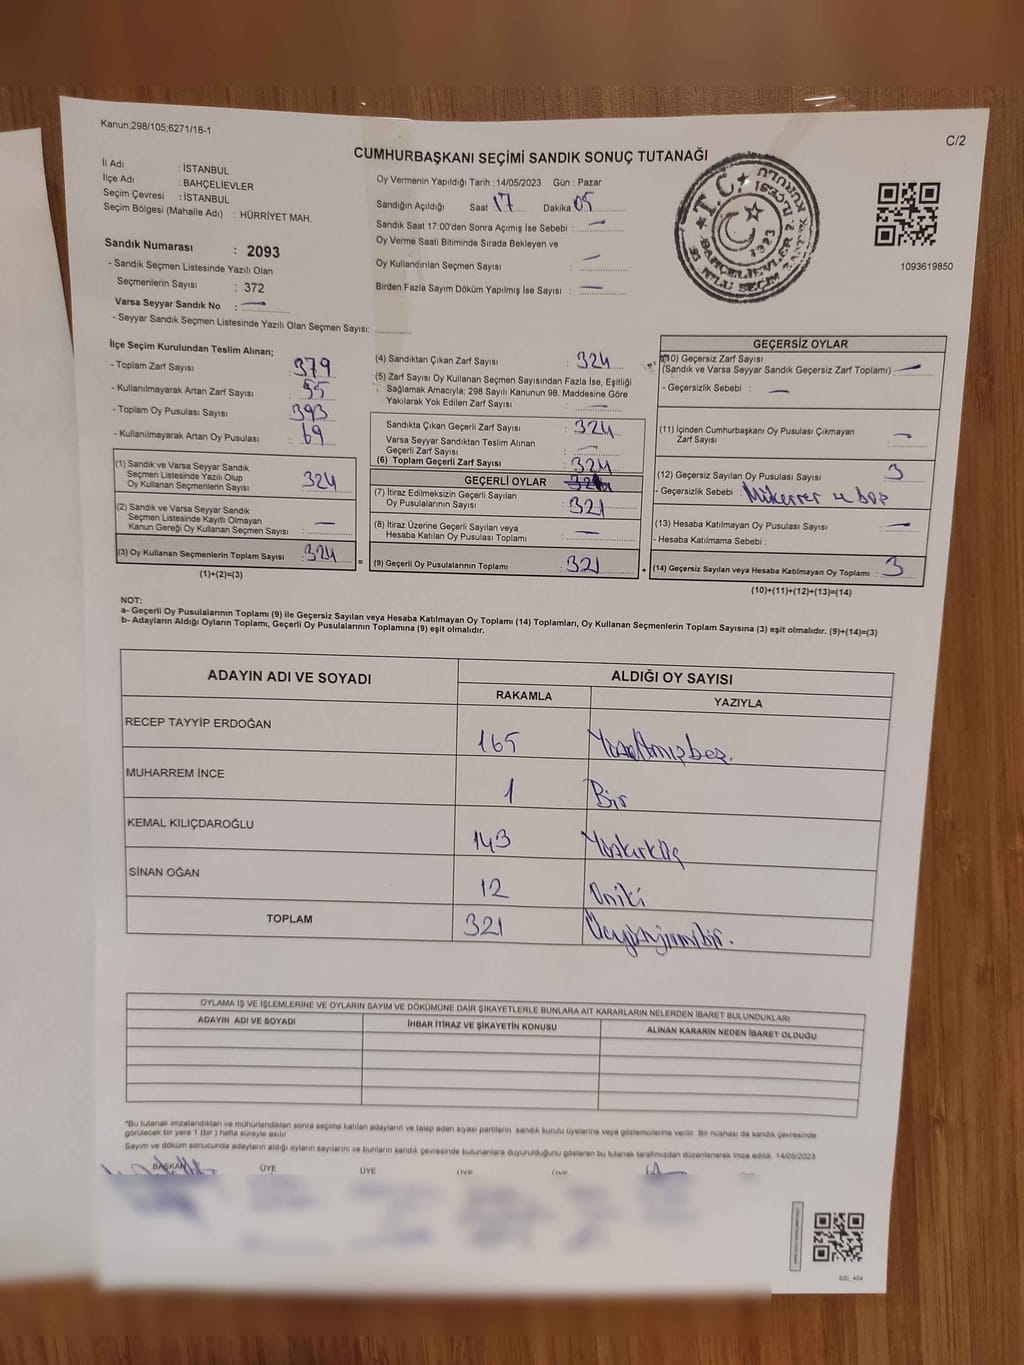 Kanun;298/105;6271/18-1
C/2
CUMHURBAŞKANI SEÇİMİ SANDIK SONUÇ TUTANAĞI
İl Adı : İSTANBUL
İlçe Adı : BAHÇELİEVLER
Seçim Çevresi : İSTANBUL
Seçim Bölgesi (Mahalle Adı) : HÜRRİYET MAH.
Sandık Numarası : 2093
- Sandık Seçmen Listesinde Yazılı Olan
Seçmenlerin Sayısı : 372
Varsa Seyyar Sandık No : —
- Seyyar Sandık Seçmen Listesinde Yazılı Olan Seçmen Sayısı:
Oy Vermenin Yapıldığı Tarih : 14/05/2023 Gün : Pazar
Sandığın Açıldığı Saat 17 Dakika 05
Sandık Saat 17:00'den Sonra Açımış İse Sebebi : —
Oy Verme Saati Bitiminde Sırada Bekleyen ve
Oy Kullandırılan Seçmen Sayısı : —
Birden Fazla Sayım Döküm Yapılmış İse Sayısı : —
T.C.
BAHÇELİEVLER 2. İLÇESİ
1923
1093619850
İlçe Seçim Kurulundan Teslim Alınan;
- Toplam Zarf Sayısı : 379
- Kullanılmayarak Artan Zarf Sayısı : 55
- Toplam Oy Pusulası Sayısı : 393
- Kullanılmayarak Artan Oy Pusulası : 69
(1) Sandık ve Varsa Seyyar Sandık
Seçmen Listesinde Yazılı Olup
Oy Kullanan Seçmenlerin Sayısı : 324
(2) Sandık ve Varsa Seyyar Sandık
Seçmen Listesinde Kayıtlı Olmayan
Kanun Gereği Oy Kullanan Seçmen Sayısı : —
(3) Oy Kullanan Seçmenlerin Toplam Sayısı : 324
(1)+(2)=(3)
(4) Sandıktan Çıkan Zarf Sayısı : 324
(5) Zarf Sayısı Oy Kullanan Seçmen Sayısından Fazla İse, Eşitliği
Sağlamak Amacıyla; 298 Sayılı Kanunun 98. Maddesine Göre
Yakılarak Yok Edilen Zarf Sayısı : —
Sandıkta Çıkan Geçerli Zarf Sayısı : 324
Varsa Seyyar Sandıktan Teslim Alınan
Geçerli Zarf Sayısı : —
(6) Toplam Geçerli Zarf Sayısı : 324
GEÇERLİ OYLAR
(7) İtiraz Edilmeksizin Geçerli Sayılan
Oy Pusulalarının Sayısı : 321
(8) İtiraz Üzerine Geçerli Sayılan veya
Hesaba Katılan Oy Pusulası Toplamı : —
(9) Geçerli Oy Pusulalarının Toplamı : 321
GEÇERSİZ OYLAR
(10) Geçersiz Zarf Sayısı
(Sandık ve Varsa Seyyar Sandık Geçersiz Zarf Toplamı) : —
- Geçersizlik Sebebi : —
(11) İçinden Cumhurbaşkanı Oy Pusulası Çıkmayan
Zarf Sayısı : —
(12) Geçersiz Sayılan Oy Pusulası Sayısı : 3
- Geçersizlik Sebebi : Mükerrer boş
(13) Hesaba Katılmayan Oy Pusulası Sayısı : —
- Hesaba Katılmama Sebebi :
(14) Geçersiz Sayılan veya Hesaba Katılmayan Oy Toplamı : 3
(10)+(11)+(12)+(13)=(14)
NOT:
a- Geçerli Oy Pusulalarının Toplamı (9) ile Geçersiz Sayılan veya Hesaba Katılmayan Oy Toplamı (14) Toplamları, Oy Kullanan Seçmenlerin Toplam Sayısına (3) eşit olmalıdır. (9)+(14)=(3)
b- Adayların Aldığı Oyların Toplamı, Geçerli Oy Pusulalarının Toplamına (9) eşit olmalıdır.
ADAYIN ADI VE SOYADI ALDIĞI OY SAYISI
RAKAMLA YAZIYLA
RECEP TAYYİP ERDOĞAN 165 Yüzaltmışbeş.
MUHARREM İNCE 1 Bir
KEMAL KILIÇDAROĞLU 143 Yüzkırküç
SİNAN OĞAN 12 Oniki
TOPLAM 321 Üçyüzyirmibir.
OYLAMA İŞ VE İŞLEMLERİNE VE OYLARIN SAYIM VE DÖKÜMÜNE DAİR ŞİKAYETLERLE BUNLARA AİT KARARLARIN NELERDEN İBARET BULUNDUKLARI
ADAYIN ADI VE SOYADI İHBAR İTİRAZ VE ŞİKAYETİN KONUSU ALINAN KARARIN NEDEN İBARET OLDUĞU
*Bu tutanak imzalandıktan ve mühürlendikten sonra seçime katılan adayların ve talep eden siyasi partilerin sandık kurulu üyelerine veya gözlemcilerine verilir. Bir nüshası da sandık çevresinde
görülecek bir yere 1 (bir) hafta süreyle asılır.
Sayım ve döküm sonucunda adayların aldığı oyların sayılarını ve bunların sandık çevresinde bulunanlara duyurulduğunu gösteren bu tutanak tarafımızdan düzenlenerek imza edildi. 14/05/2023
BAŞKAN ÜYE ÜYE ÜYE ÜYE